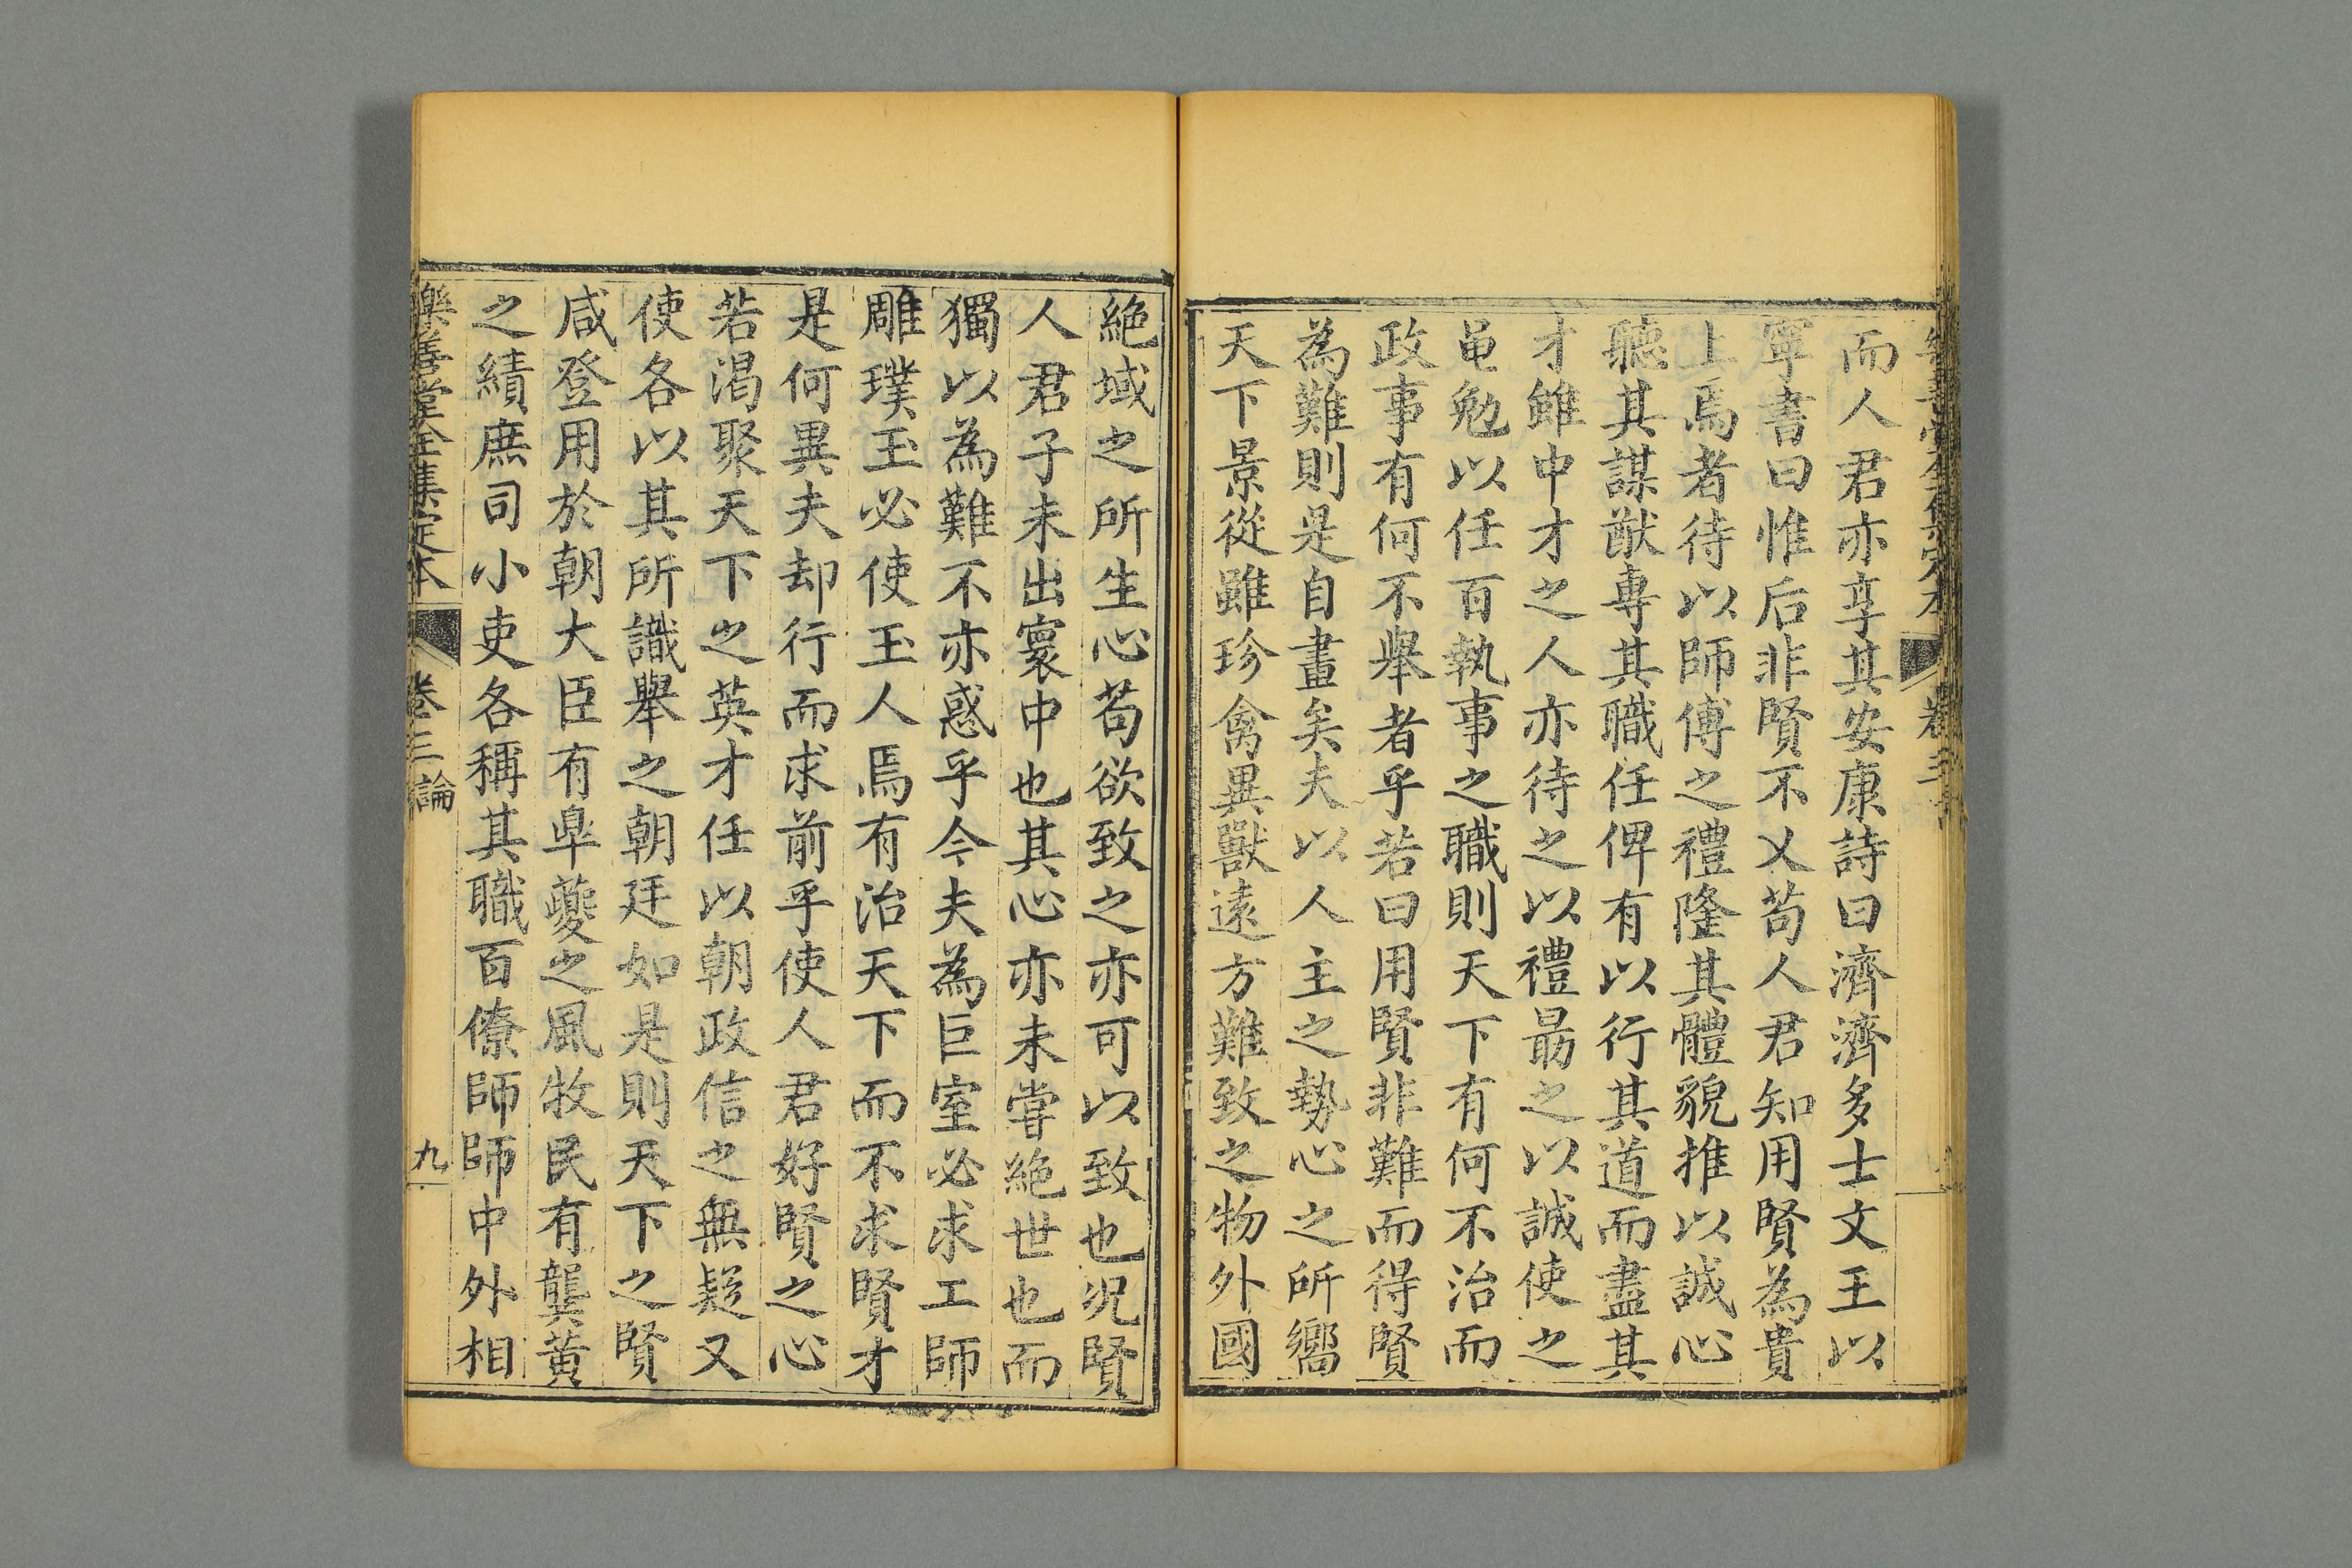 而人君亦享其安康詩曰濟濟多士文王以
寧書曰惟后非賢不乂苟人君知用賢為貴
上焉者待以師傅之禮隆其體貌推以誠心
聽其謀猷專其職任俾有以行其道而盡其
才雖中才之人亦待之以禮勗之以誠使之
黽勉以任百執事之職則天下有何不治而
政事有何不舉者乎若曰用賢非難而得賢
為難則是自畫矣夫以人主之勢心之所嚮
天下景從雖珍禽異獸遠方難致之物外國
絕域之所生心苟欲致之亦可以致也況賢
人君子未出寰中也其心亦未嘗絕世也而
獨以為難不亦惑乎今夫為巨室必求工師
雕璞玉必使玉人焉有治天下而不求賢才
是何異夫却行而求前乎使人君好賢之心
若渴聚天下之英才任以朝政信之無疑又
使各以其所識舉之朝廷如是則天下之賢
咸登用於朝大臣有臯夔之風牧民有龔黃
之績庶司小吏各稱其職百僚師師中外相
樂善堂全集定本 卷三 論 九